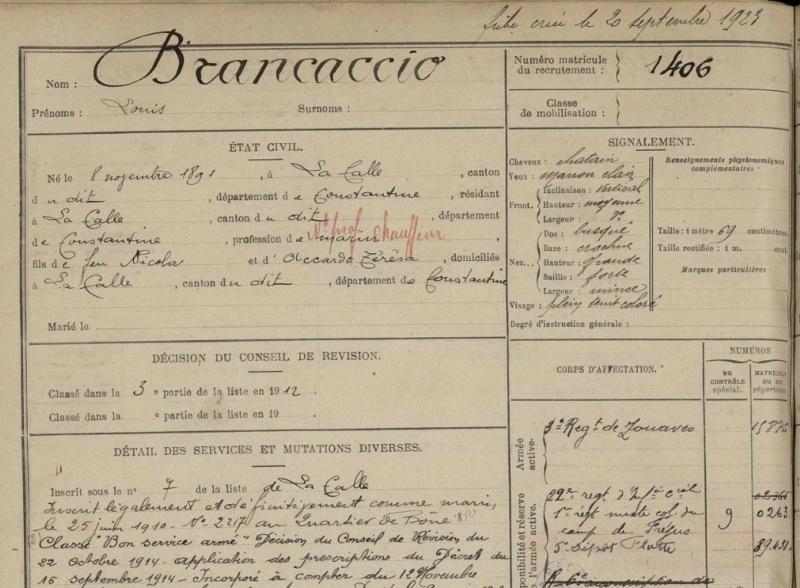 fiche créée le 20 septembre 1923
Nom : Brancaccio
Prénoms : Louis Surnoms :
Numéro matricule du recrutement : 1406
Classe de mobilisation :
ÉTAT CIVIL.
Né le 8 novembre 1891, à La Calle, canton
du dit, département de Constantine, résidant
à La Calle, canton du dit, département
de Constantine, profession de marin chauffeur
fils de feu Nicola et d'Accardo Térésa, domiciliés
à La Calle, canton du dit, département de Constantine
Marié le
SIGNALEMENT.
Cheveux : chatain
Yeux : marron clair
Front. Inclinaison : vertical
Hauteur : moyenne
Largeur : do
Nez... Dos : busqué
Base :
Hauteur : grande
Saillie : forte
Largeur : mince
Visage : plein teint coloré
Degré d'instruction générale :
Renseignements physionomiques complémentaires
Taille : 1 mètre 69 centimètres.
Taille rectifiée : 1 m. cent.
Marques particulières
DÉCISION DU CONSEIL DE REVISION.
Classé dans la 3e partie de la liste en 1912.
Classé dans la e partie de la liste en 19
DÉTAIL DES SERVICES ET MUTATIONS DIVERSES.
Inscrit sous le no 7 de la liste de La Calle
Inscrit légalement et définitivement comme marin,
le 25 juin 1910 - No 2217 au Quartier de Bône
Classé "Bon service armé" Décision du Conseil de Révision du
22 octobre 1914 - application des prescriptions du Décret du
15 septembre 1914 - Incorporé à compter du 12 Novembre
CORPS D'AFFECTATION.
NUMÉROS
AU CONTRÔLE spécial.
MATRICULE OU AU répertoire.
Armée active.
3e Regt. de Zouaves
Disponibilité et réserve de l'armée active.
22me regt d'Infie Cole
1er regt mixte col. du
camp de Fréjus 9 0263
5e Dépôt Flotte